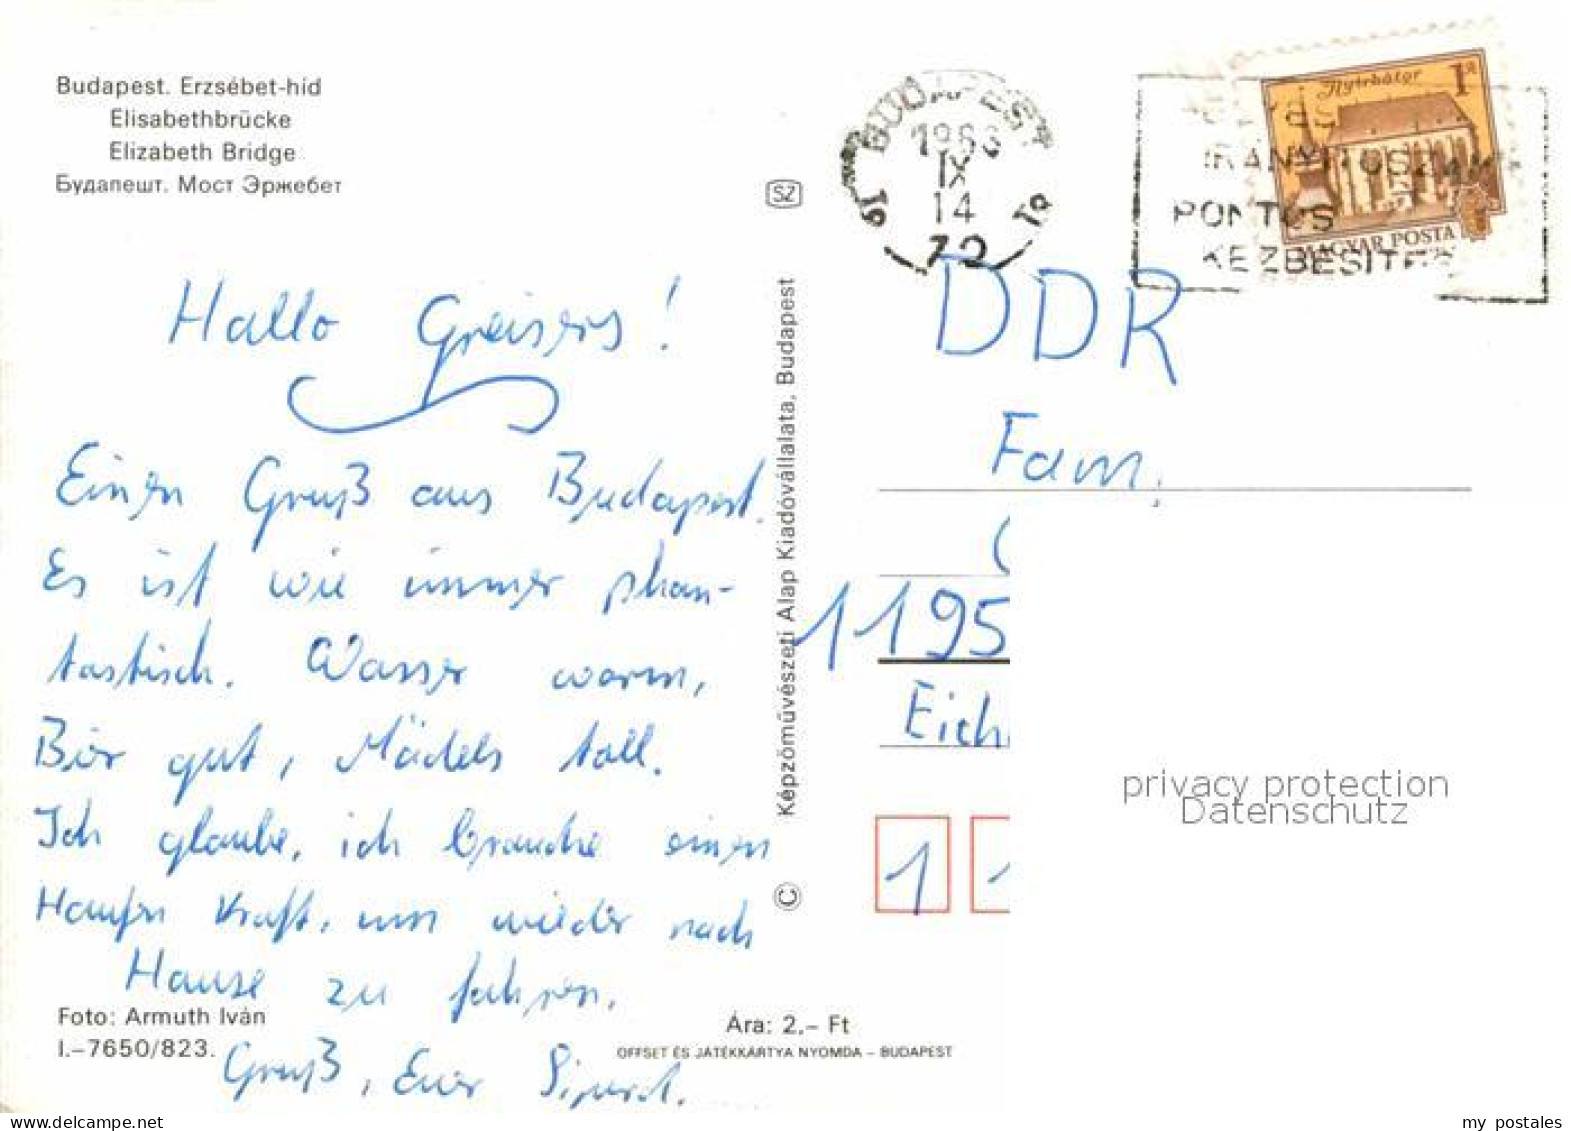 Budapest. Erzsébet-híd
Elisabethbrücke
Elizabeth Bridge
Будапешт. Мост Эржебет
Hallo Greisers!
Einen Gruß aus Budapest.
Es ist wie immer phan-
tastisch. Wasser warm,
Bier gut, Mädels toll.
Ich glaube, ich brauche einen
Haufen Kraft, um wieder nach
Hause zu fahren.
Gruß, Euer
Foto: Armuth Iván
I.–7650/823.
Ára: 2,– Ft
OFFSET ÉS JÁTÉKKÁRTYA NYOMDA – BUDAPEST
SZ
© Képzőművészeti Alap Kiadóvállalata, Budapest
BUDAPEST
IX
14
72
Nyírbátor
MAGYAR POSTA
IRÁNYÍTÓSZÁM
PONTOS
KÉZBESÍTÉS
DDR
Fam.
1195
Eich
1 1
privacy protection
Datenschutz
my_postales
www.delcampe.net